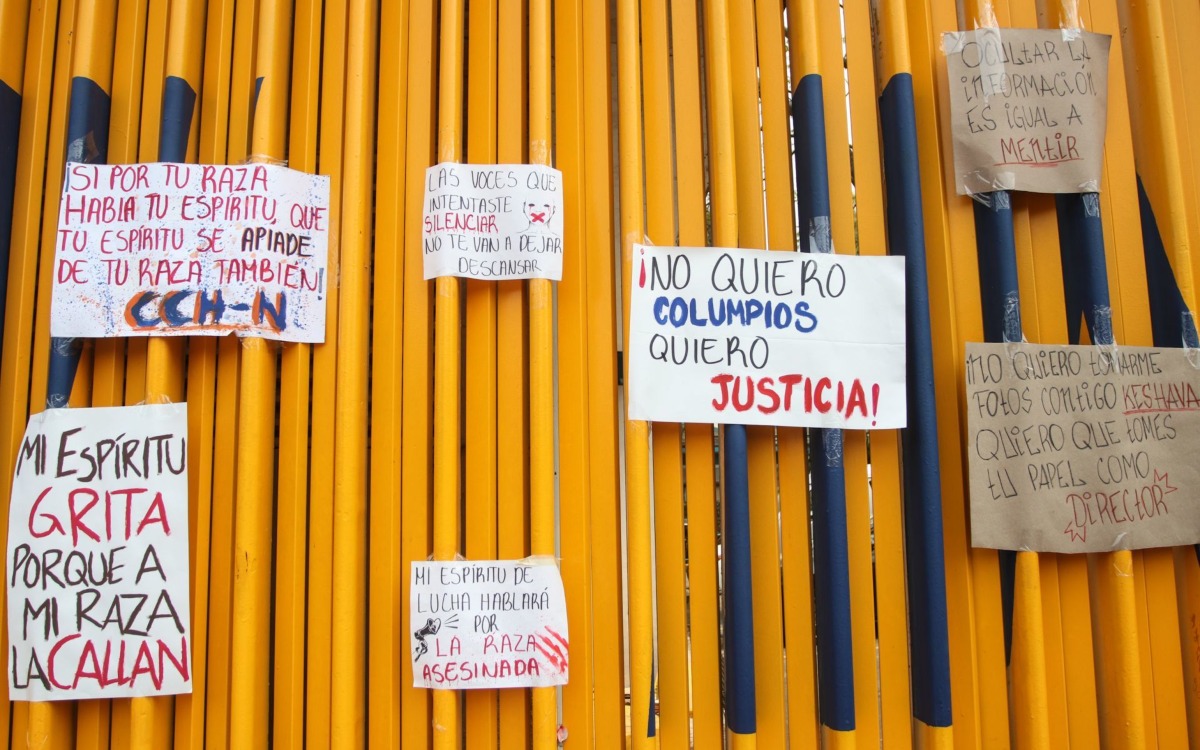 ¡SI POR TU RAZA
HABLA TU ESPÍRITU, QUE
TU ESPÍRITU SE APIADE
DE TU RAZA TAMBIEN!
CCH-N
MI ESPÍRITU
GRITA
PORQUE A
MI RAZA
LA CALLAN
LAS VOCES QUE
INTENTASTE
SILENCIAR
NO TE VAN A DEJAR
DESCANSAR
MI ESPÍRITU DE
LUCHA HABLARÁ
POR
LA RAZA
ASESINADA
¡NO QUIERO
COLUMPIOS
QUIERO
JUSTICIA!
OCULTAR LA
INFORMACIÓN
ES IGUAL A
MENTIR
¡NO QUIERO TOMARME
FOTOS CONTIGO KESHAVA
QUIERO QUE TOMES
TU PAPEL COMO
DIRECTOR